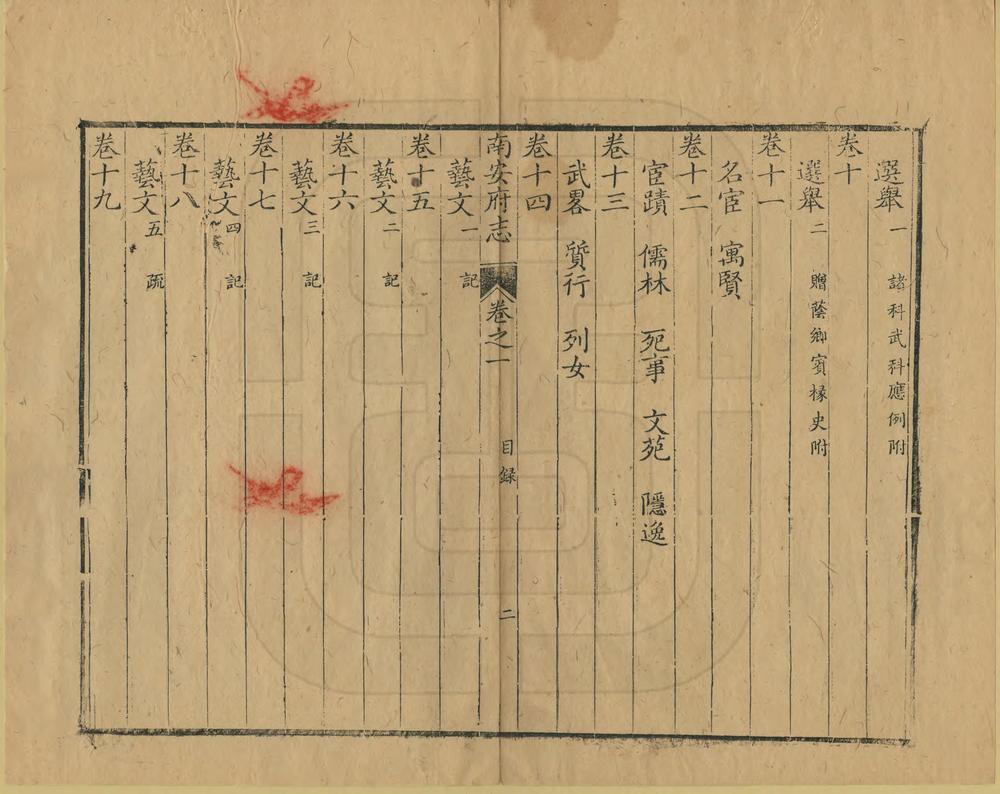 選舉一 諸科武科應例附
卷十
選舉二 贈蔭鄉賓椽史附
卷十一
名宦 寓賢
卷十二
宦蹟 儒林 死事 文苑 隱逸
卷十三
武畧 質行 列女
卷十四
南安府志 卷之一 目録 二
藝文一 記
卷十五
藝文二 記
卷十六
藝文三 記
卷十七
藝文四 記
卷十八
藝文五 疏
卷十九